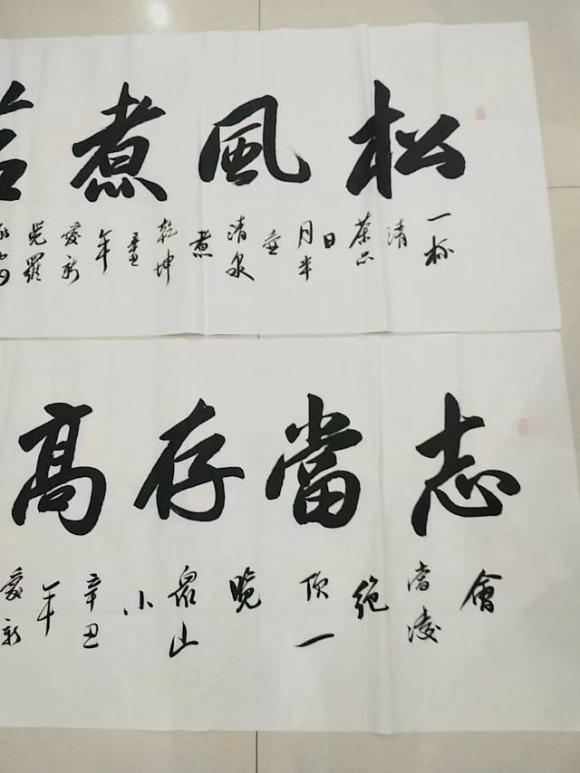 松風煮茗
一杯清茶品日月半壺清泉煮乾坤辛丑年愛新覺羅
志當存高
會當凌絕頂一覽眾山小辛丑年愛新